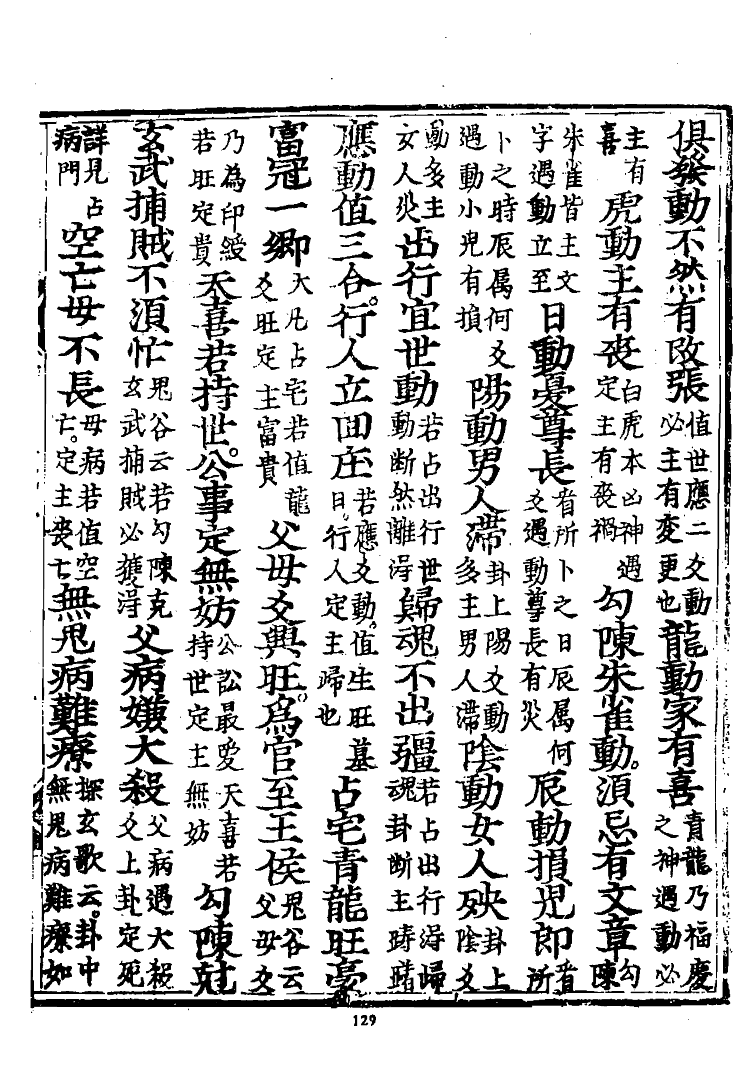 俱發動不然有改張值世應二爻動必主有変更也龍動家有喜青龍乃福慶之神遇動必
主有喜虎動主有喪白虎本凶神遇定主有喪禍勾陳朱雀動。須忌有文章勾陳
朱雀皆主文字遇動立至日動憂尊長看所卜之日辰属何爻遇動尊長有災辰動損児郎看所
卜之時辰属何爻遇動小児有損陽動男人滯卦上陽爻動多主男人滯陰動女人殃卦上陰爻
動多主女人災出行宜世動若占出行世動断然離淂歸魂不出疆若占出行淂歸魂卦断主踌躇
應動值三合。行人立回庄若應爻動。值生旺墓日。行人定主歸也占宅青龍旺豪
富冠一鄉大凡占宅若值龍爻旺定主富貴父毋爻興旺。為官至王侯鬼谷云父毋爻
乃為印綬若旺定貴天喜若持世。公事定無妨公訟最愛天喜若持世定主無妨勾陳尅
玄武捕賊不湏忙鬼谷云若勾陳克玄武捕賊必獲淂父病嫌大殺父病遇大殺爻上卦定死
詳見占病門空亡毋不長毋病若值空亡。定主喪亡無鬼病難療探玄歌云。卦中無鬼病難療如
129